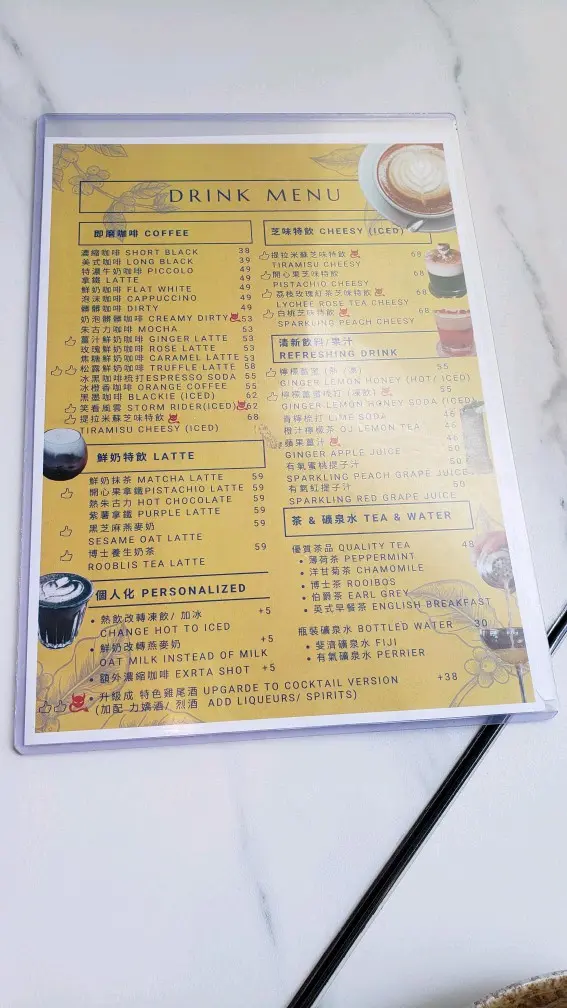 DRINK MENU
即磨咖啡 COFFEE
濃縮咖啡 SHORT BLACK 38
美式咖啡 LONG BLACK 39
特濃牛奶咖啡 PICCOLO 49
拿鐵 LATTE 49
鮮奶咖啡 FLAT WHITE 49
泡沫咖啡 CAPPUCCINO 49
髒髒咖啡 DIRTY 49
奶泡髒髒咖啡 CREAMY DIRTY 53
朱古力咖啡 MOCHA 53
薑汁鮮奶咖啡 GINGER LATTE 53
玫瑰鮮奶咖啡 ROSE LATTE 53
焦糖鮮奶咖啡 CARAMEL LATTE 53
松露鮮奶咖啡 TRUFFLE LATTE 58
冰黑咖啡梳打 ESPRESSO SODA 55
冰橙香咖啡 ORANGE COFFEE 55
黑墨咖啡 BLACKIE (ICED) 62
笑看風雲 STORM RIDER(ICED) 62
提拉米蘇芝味特飲 68
TIRAMISU CHEESY (ICED)
鮮奶特飲 LATTE
鮮奶抹茶 MATCHA LATTE 59
開心果拿鐵 PISTACHIO LATTE 59
熱朱古力 HOT CHOCOLATE 59
紫薯拿鐵 PURPLE LATTE 59
黑芝麻燕麥奶 59
SESAME OAT LATTE
博士養生奶茶 59
ROOBLIS TEA LATTE
個人化 PERSONALIZED
• 熱飲改轉凍飲/ 加冰 +5
CHANGE HOT TO ICED
• 鮮奶改轉燕麥奶 +5
OAT MILK INSTEAD OF MILK
• 額外濃縮咖啡 EXRTA SHOT +5
• 升級成 特色雞尾酒 UPGARDE TO COCKTAIL VERSION +38
(加配 力嬌酒/ 烈酒 ADD LIQUEURS/ SPIRITS)
芝味特飲 CHEESY (ICED)
提拉米蘇芝味特飲 68
TIRAMISU CHEESY
開心果芝味特飲 68
PISTACHIO CHEESY
荔枝玫瑰紅茶芝味特飲 68
LYCHEE ROSE TEA CHEESY
白桃芝味特飲 68
SPARKLING PEACH CHEESY
清新飲料/果汁
REFRESHING DRINK
檸檬薑蜜 (熱/凍) 55
GINGER LEMON HONEY (HOT/ ICED)
檸檬薑蜜梳打 (凍飲) 55
GINGER LEMON HONEY SODA (ICED)
青檸梳打 LIME SODA 46
橙汁檸檬茶 OJ LEMON TEA 46
蘋果薑汁 46
GINGER APPLE JUICE
有氣蜜桃提子汁 50
SPARKLING PEACH GRAPE JUICE
有氣紅提子汁 50
SPARKLING RED GRAPE JUICE
茶 & 礦泉水 TEA & WATER
優質茶品 QUALITY TEA 48
• 薄荷茶 PEPPERMINT
• 洋甘菊茶 CHAMOMILE
• 博士茶 ROOIBOS
• 伯爵茶 EARL GREY
• 英式早餐茶 ENGLISH BREAKFAST
瓶裝礦泉水 BOTTLED WATER 30
• 斐濟礦泉水 FIJI
• 有氣礦泉水 PERRIER